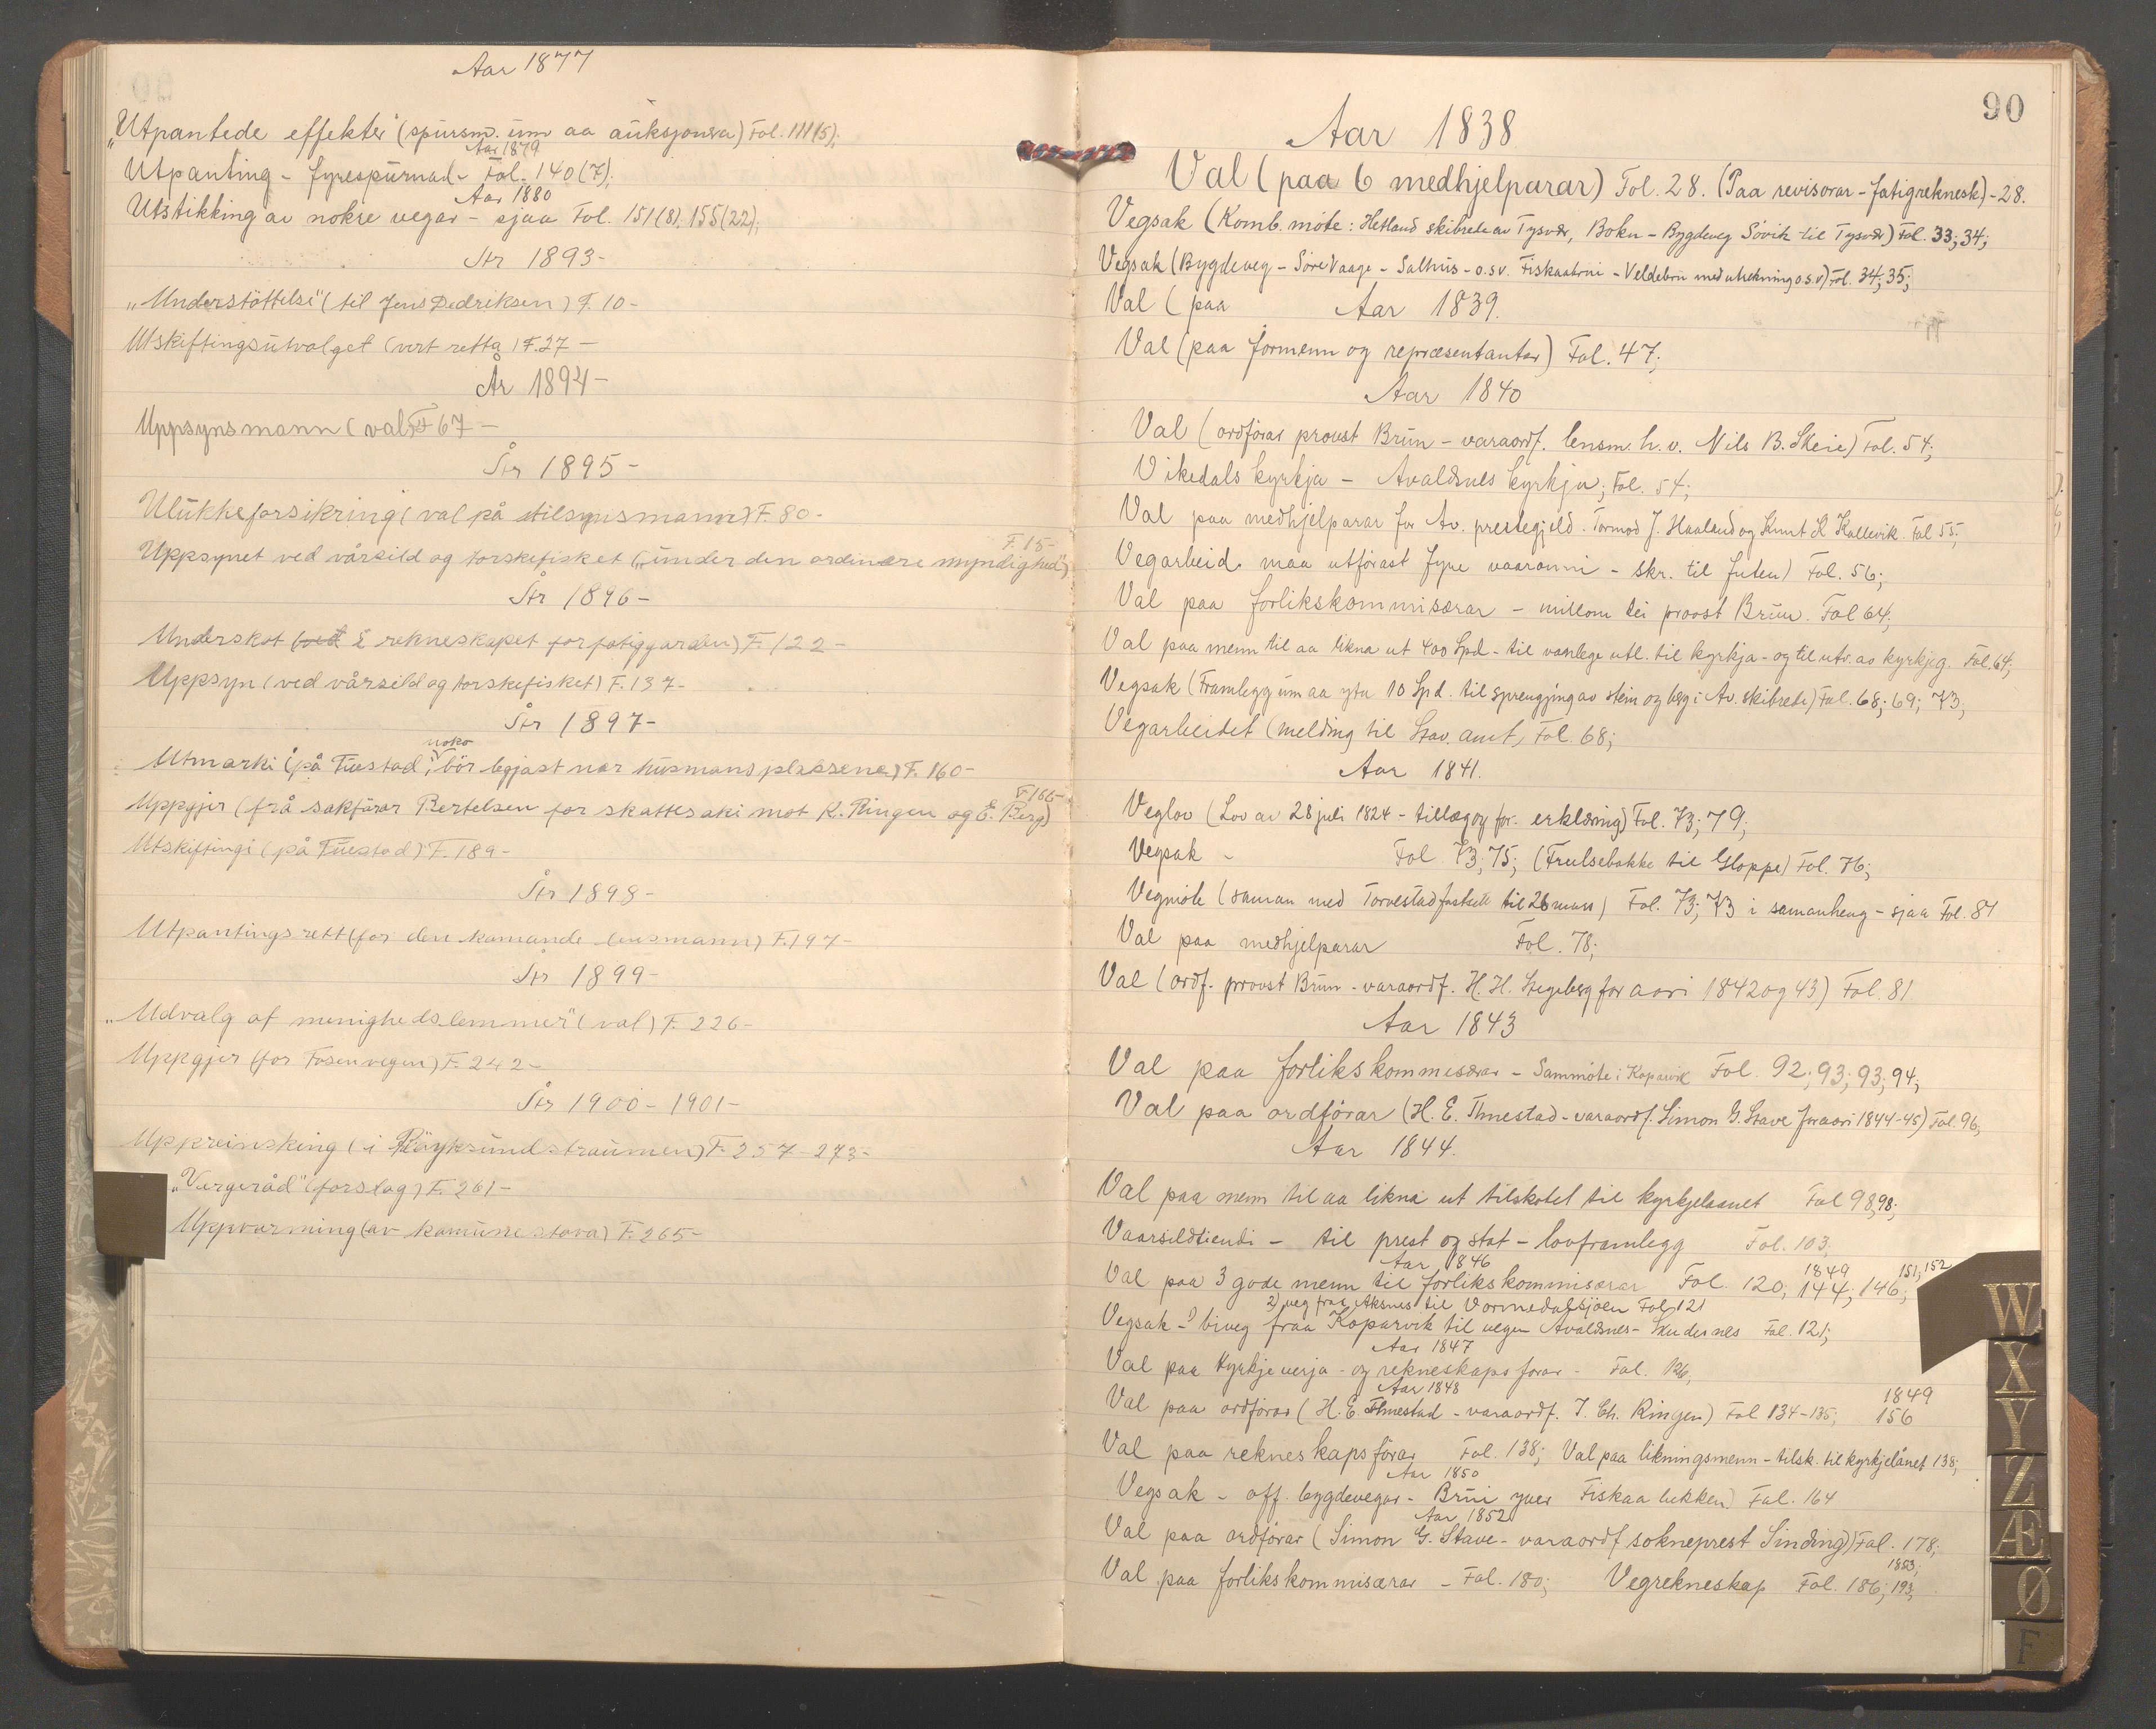 Aar 1877
„Utpantede effekter" (spursm. um aa auksjonera) Fol. 111(5);
Aar 1879
Utpanting - fyrespurnad - Fol. 140(7);
Aar 1880
Utstikking av nokre vegar - sjaa Fol. 151(8), 155(22);
År 1893-
„Understöttelse" (til Jens Dedriksen) F. 10-
Utskiftingsutvalget (vert retta) F. 27-
År 1894-
Uppsynsmann (val) F 67-
År 1895-
Ulukkeforsikring (val på tilsynsmann) F. 80-
F. 15-
Uppsynet ved vårsild og torskefisket („under den ordinære myndighed")
År 1896-
Underskot i rekneskapet for fatiggarden) F. 122-
Uppsyn (ved vårsild og torskefisket) F. 137-
År 1897-
noko
Utmarki (på Tuestad, bör leggjast nær husmansplassene) F. 160-
F 166-
Uppgjer (frå sakförar Bertelsen for skattesaki mot K. Ringen og E. Berg)
Utskiftingi (på Tuestad) F. 189-
År 1898-
Utpantingsrett (for den komande lensmann) F. 197-
År 1899-
„Udvalg af menighedslemmer" (val) F. 226-
Uppgjer (for Fosenvegen) F. 242-
År 1900-1901-
Uppreinsking (i Röyksundstraumen) F. 257-273-
„Vergeråd" (forslag) F. 261-
Uppvarming (av komunestova) F. 265-
90
Aar 1838
Val (paa 6 medhjelparar) Fol. 28. (Paa revisorar - fatigreknesk) - 28.
Vegsak (Komb. möte: Hetland skibrede av Tysvær, Bokn - Bygdeveg Sövik til Tysvær) Fol. 33; 34;
Vegsak (Bygdeveg - Söre Vaage - Salhus - o.s.v. Fiskaabrui - Veldebru med utrekning o.s.v) Fol. 34; 35;
Val (paa Aar 1839.
Val (paa formenn og repræsentanter) Fol. 47;
Aar 1840
Val (ordförar provst Brun - varaordf. lensm. h. v. Nils B. Skeie) Fol. 54;
Vikedals kyrkja - Avaldsnes kyrkja; Fol. 54;
Val paa medhjelparar for Av. prestegjeld. Tormod J. Haaland og Knut L Kallevik. Fol 55;
Vegarbeid maa utförast fyre vaaronni - skr. til futen) Fol. 56;
Val paa forlikskommisærar - millom dei provst Brun. Fol 64;
Val paa menn til aa likna ut 400 Spd - til vanlege utl. til kyrkja - og til utv. av kyrkjeg. Fol. 64;
Vegsak (Framlegg um aa yta 10 Spd. til sprengjing av stein og berg i Av. skibrede) Fol. 68; 69; 73;
Vegarbeidet (melding til Stav. amt, Fol. 68;
Aar 1841.
Veglov (Lov av 28 juli 1824 - tillegg og for. erklæring) Fol. 73; 79;
Vegsak - Fol 73; 75; (Frulsebakke til Gloppe) Fol. 76;
Vegmöte (saman med Torvestad fastsett til 26 mars) Fol. 73; 73 i samanheng - sjaa Fol. 81
Val paa medhjelparar Fol. 78;
Val (ordf. provst Brun - varaordf. H. H. Stegeberg for aari 1842 og 43) Fol. 81
Aar 1843
Val paa forlikskommesærar - Sammöte i Kopavik Fol. 92; 93; 93; 94;
Val paa ordförar (H. E. Thuestad - varaordf. Simon G. Stave for aari 1844-45) Fol. 96;
Aar 1844.
Val paa menn til aa likna ut tilskotet til kyrkjelaanet Fol 98, 98;
Vaarsildtiendi - til prest og stat - lovframlegg Fol. 103.
Aar 1846 1849 151; 152
Val paa 3 gode menn til forlikskommisærar Fol. 120; 144; 146;
2) veg fraa Aksnes til Vormedalsjöen Fol 121
Vegsak - 1) biveg fraa Koparvik til vegen Avaldsnes - Skudesnes Fol. 121;
Aar 1847
Val paa Kyrkjeverja - og rekneskapsförar - Fol. 126,
Aar 1848 1849
Val paa ordförar (H. E. Thuestad - varaordf. T. Ch. Ringen) Fol 134-135; 156
Val paa rekneskapsförar Fol. 138; Val paa likningsmenn - tilsk. til kyrkjelånet 138;
Aar 1850
Vegsak - off. bygdevegar - Brui yver Fiskaabekken) Fol. 164
Aar 1852
Val paa ordförar (Simon G. Stave - varaordf sokneprest Sinding) Fol. 178;
1853;
Val paa forlikskommisærar - Fol. 180; Vegrekneskap Fol. 186; 193,
W
X
Y
Z
Æ
Ø
F